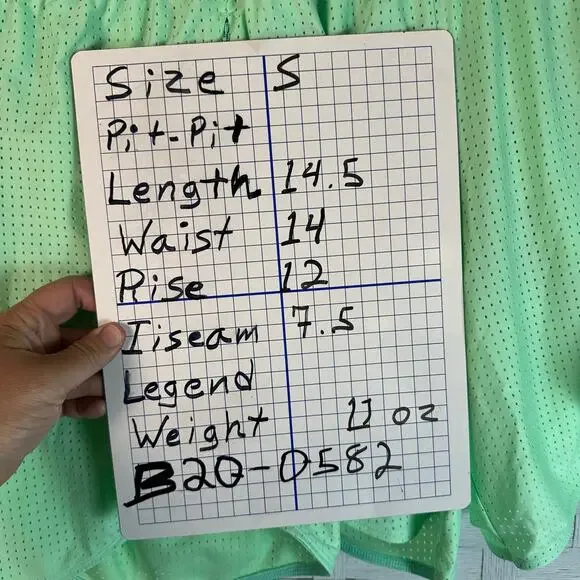 Size S
Pit-Pit
Length 14.5
Waist 14
Rise 12
Iiseam 7.5
Legend
Weight oz
B20-0582